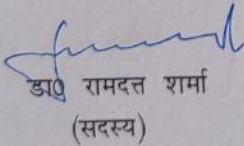 डा0 रामदत्त शर्मा
(सदस्य)